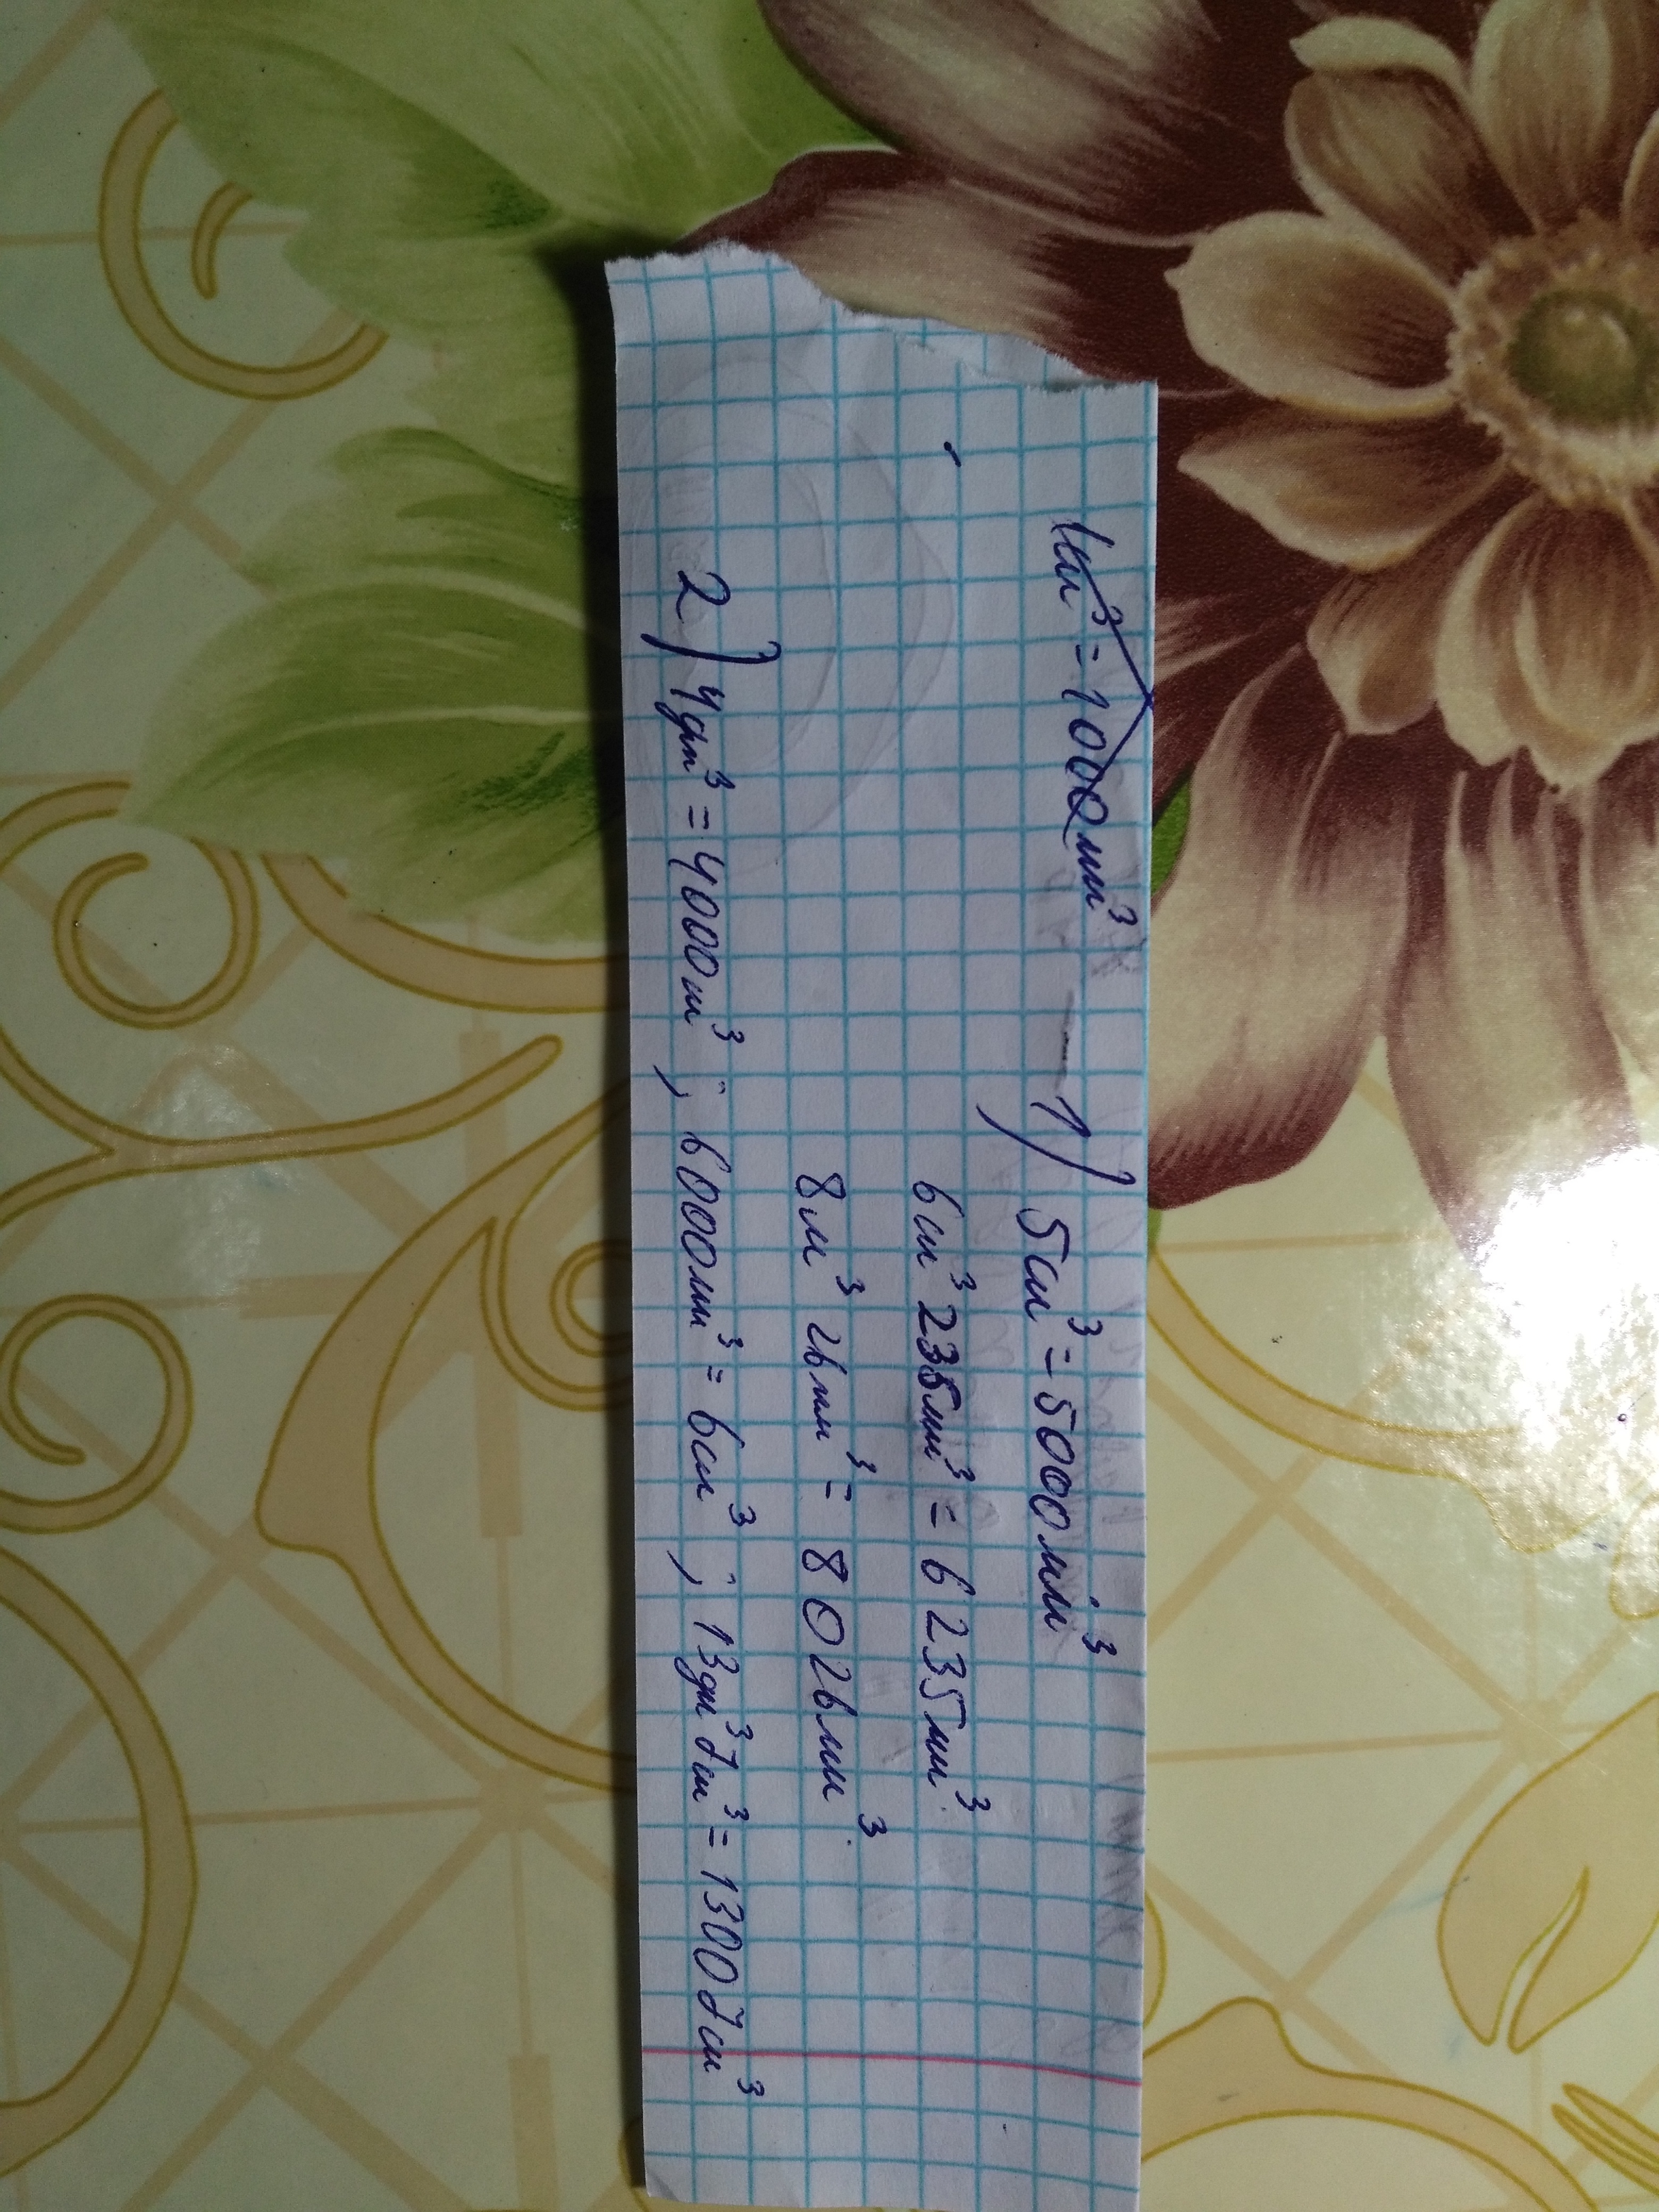 1см³ = 1000мм³ 1) 5см³ = 5000мм³
6см³ 235мм³ = 6235мм³
8м³ 26мм³ = 8026мм³
2) 4дм³ = 4000м³; 6000мм³ = 6см³; 13дм³ 7см³ = 13007см³